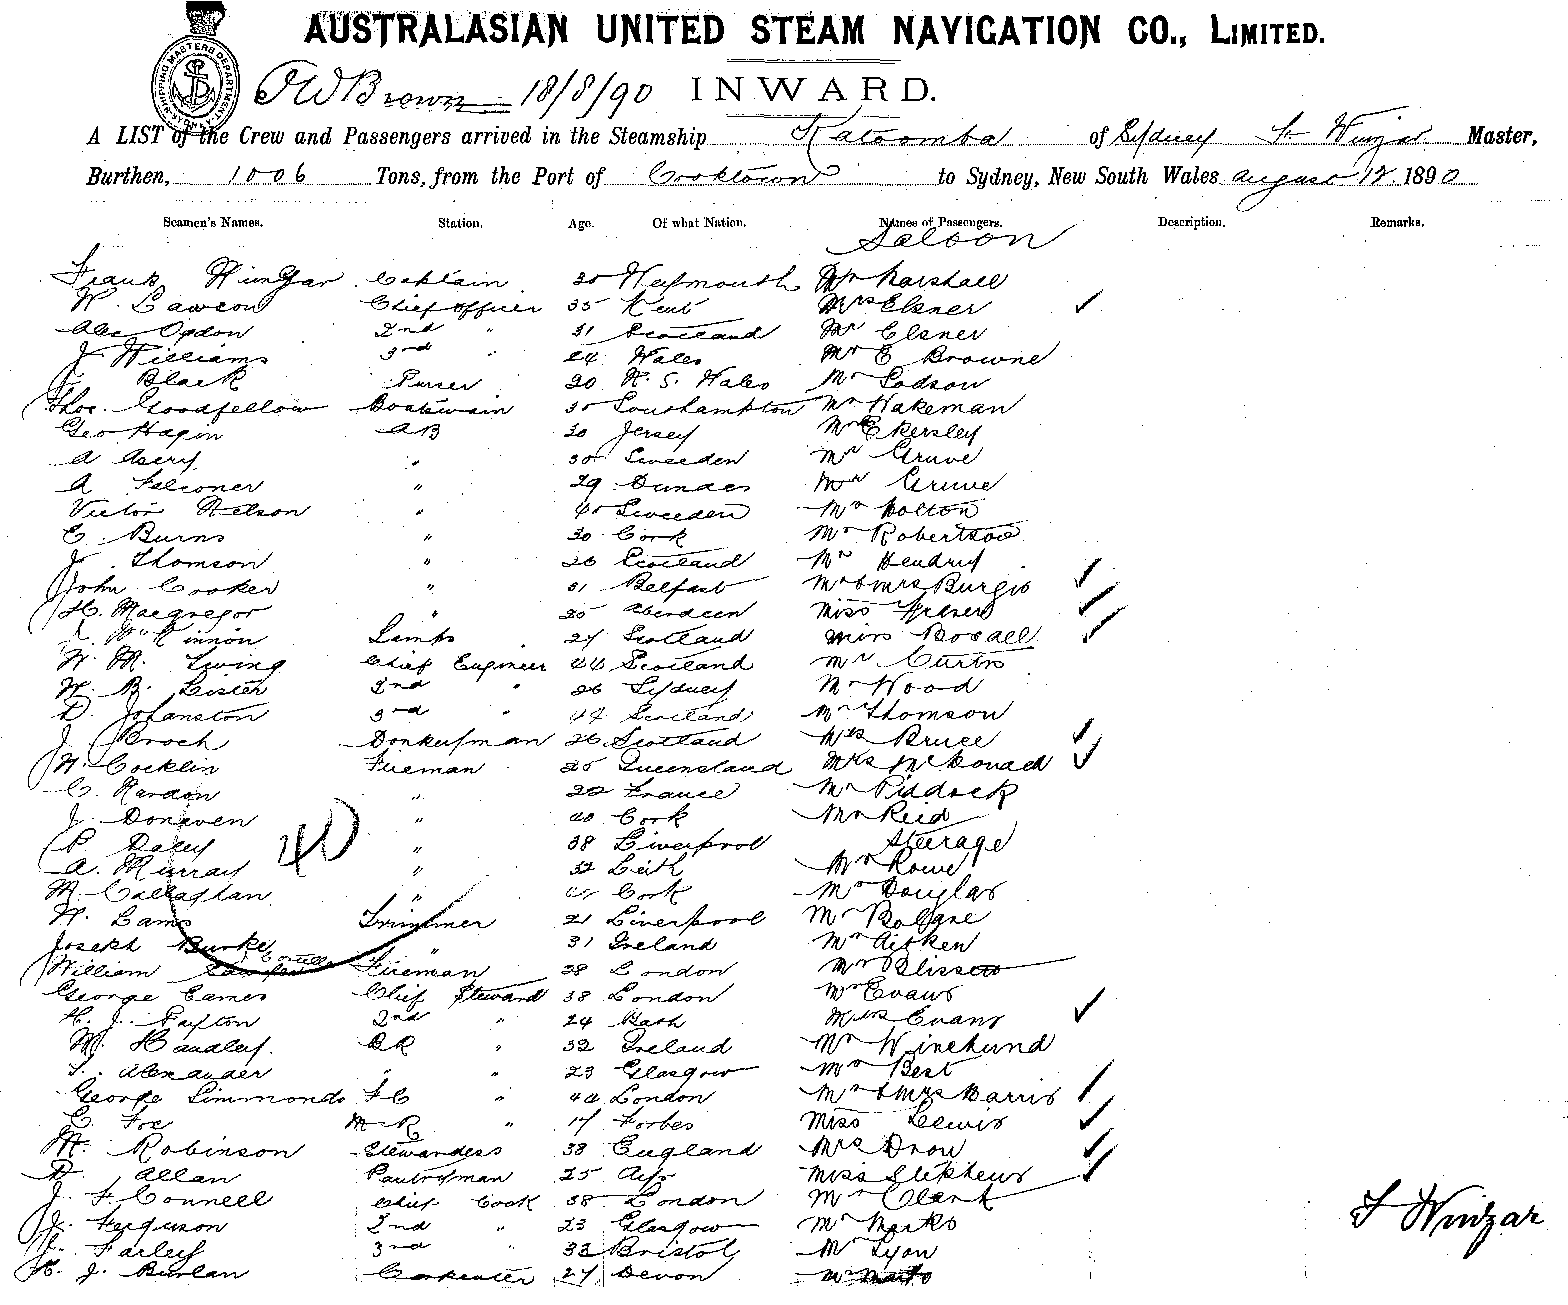 AUSTRALASIAN UNITED STEAM NAVIGATION CO., LIMITED.
SHIPPING MASTERS DEPARTMENT
18/8/90 INWARD.
A LIST of the Crew and Passengers arrived in the Steamship Katoomba of Sydney F Winzar Master,
Burthen, 1006 Tons, from the Port of Cooktown to Sydney, New South Wales August 1890
Seamen's Names. Station. Age. Of what Nation. Names of Passengers. Description. Remarks.
Saloon
Frank Winzar Captain 30 Weymouth Mr Marshall
W. Lawson Chief Officer 35 Kent Mrs Elsner
Alex Ogdon 2nd " 31 Scotland Mr Elsner
J Williams 3rd " 24 Wales Mr E Browne
Black Purser 20 N. S. Wales Mr
Thos. Goodfellow Boatswain 30 Southampton Mr Wakeman
Geo Hagin AB 30 Jersey Mr Ekersley
A Asery " 30 Sweeden Mr Gruve
A Falconer " 29 Dundee Mr Gruve
Victor Nelson " 40 Sweeden Mr Holton
C Burns " 30 Cork Mr Robertson
J. Thomson " 26 Scotland Mr Hendry
John Cooker " 31 Belfast Mr & Mrs Burgis
H. Macgregor " 25 Aberdeen Miss Fraser
McKinnon Lamps 27 Scotland Miss
W. M. Ewing Chief Engineer 44 Scotland Mr Curtis
W. B. Lister 2nd " 26 Sydney Mr Wood
D. Johanston 3rd " 44 Scotland Mr Thomson
J Broch Donkeyman 26 Scotland Mrs Bruce
W. Cocklin Fireman 25 Queensland Mrs McDonald
C. Nardon " 22 France Mr Piddock
J. Donaven " 40 Cork Mr Reid
P Daley " 38 Liverpool Steerage
A. Murray " 32 Leith Mr Rowe
M. Callaghan " Cork Mr Douglas
W. Lams Trimmer 21 Liverpool Mr
Joseph Burke " 31 Ireland Mr Aitken
William Costello Fireman 28 London Mr Blissett
George Eames Chief Steward 38 London Mr Evans
H. J. Paxton 2nd " 24 Bath Mrs Evans
W. Handley. BR " 32 Ireland Mr
Alexander " " 23 Glasgow Mr Best
George Simmonds FC " 40 London Mr & Mrs Harris
C Foe MR " 17 Forbes Miss Lewis
M. Robinson Stewardess 38 England Mrs Drow
D. Allan Pantryman 25 Ayr Miss Stephens
J. F Connell Chief Cook 38 London Mr Clark
J. Ferguson 2nd " 23 Glasgow Mr Marks
Farley 3rd " 32 Bristol Mr Lyon
H. J. Burlan Carpenter 27 Devon
40
F Winzar